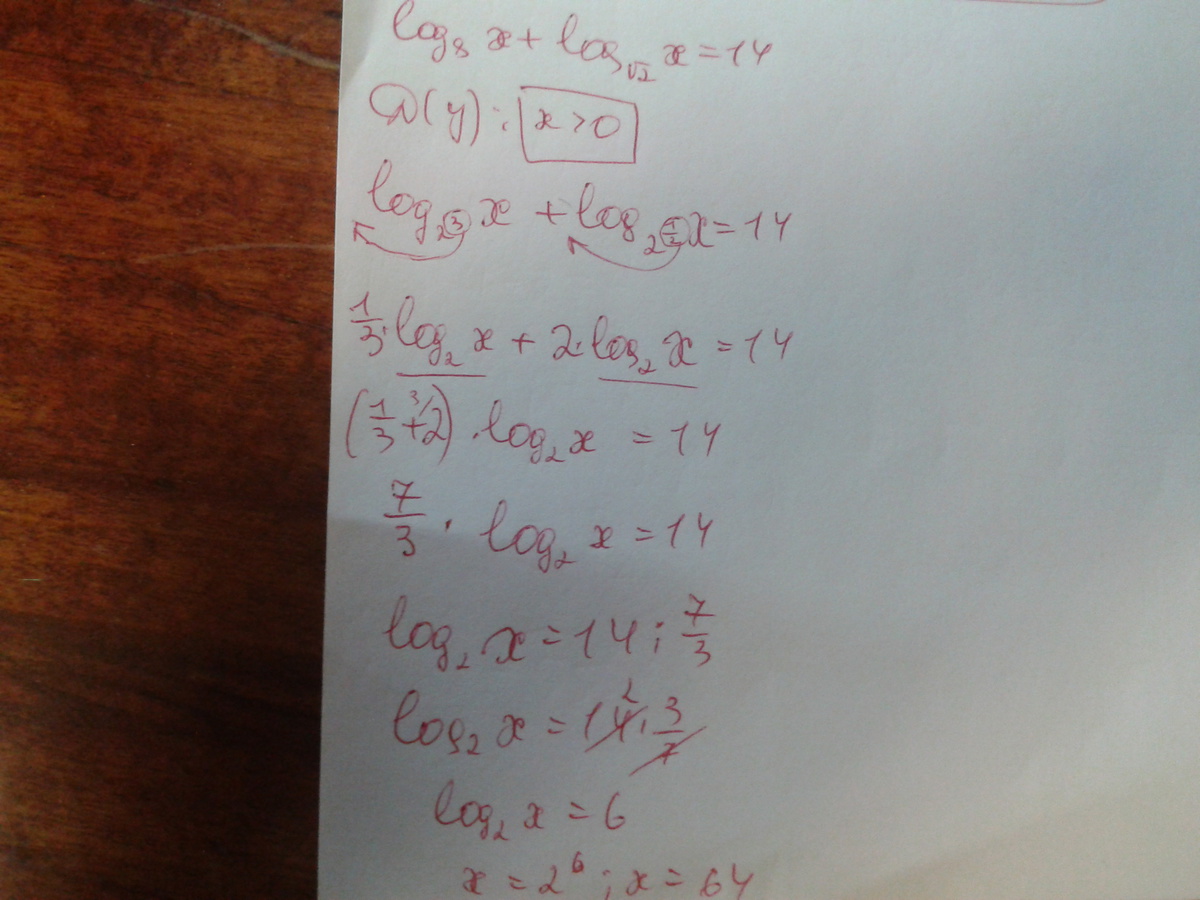 log₈ x + log_√2 x = 14
D(y): x > 0
log_2³ x + log_2^½ x = 14
1/3 · log₂ x + 2 · log₂ x = 14
(1/3 + 2 ³⁄) · log₂ x = 14
7/3 · log₂ x = 14
log₂ x = 14 : 7/3
log₂ x = 14 ² · 3/7
log₂ x = 6
x = 2⁶ ; x = 64